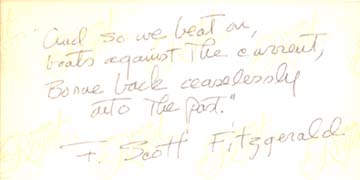 "And so we beat on,
boats against The current,
Borne back ceaselessly
into The past."
F. Scott Fitzgerald